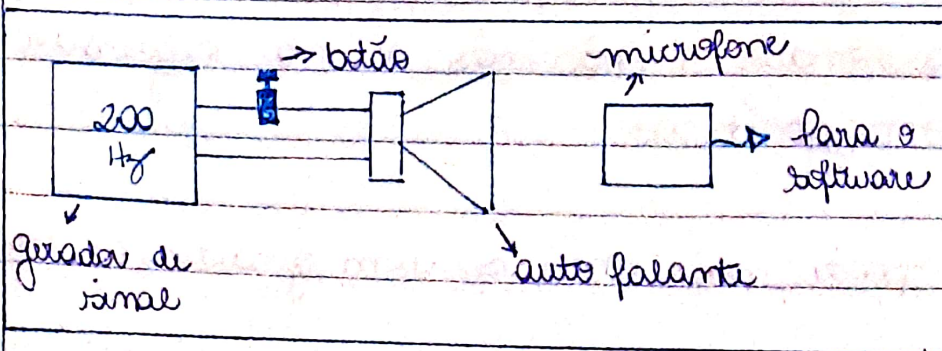 botão
microfone
200
Hz
Para o
software
gerador de
sinal
auto falante